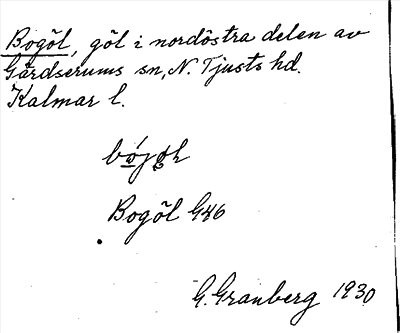 Bogöl, göl i nordöstra delen av
Gärdserums sn, N. Tjusts hd.
Kalmar l.
Bogöl G46
G. Granberg 1930